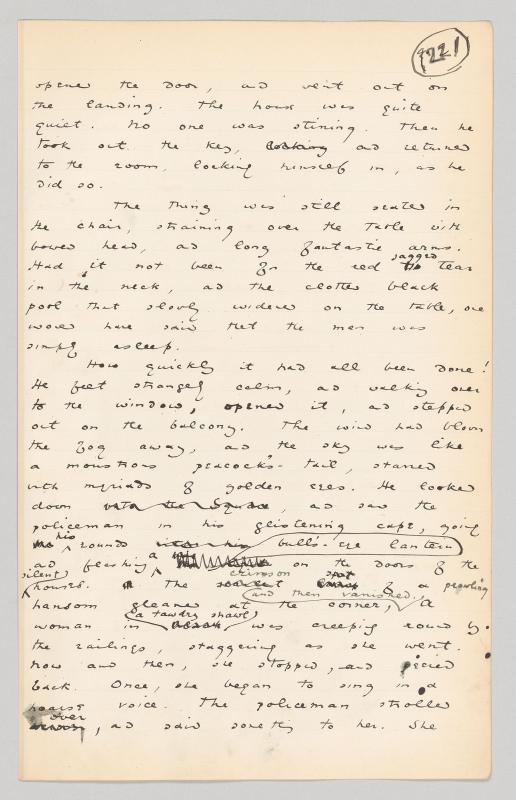 221
opened the door, and went out on
the landing. The house was quite
quiet. No one was stirring. Then he
took out the key, looking and returned
to the room, locking himself in, as he
did so.
The thing was still seated in
the chair, straining over the table with
bowed head, and long fantastic arms.
Had it not been for the red jagged tear
in the neck, and the clotted black
pool that slowly widened on the table, one
would have said that the man was
simply asleep.
How quickly it had all been done!
He felt strangely calm, and walking over
to the window, opened it, and stepped
out on the balcony. The wind had blown
the fog away, and the sky was like
a monstrous peacock's tail, starred
with myriads of golden eyes. He looked
down into the Square, and saw the
policeman in his glistening cape, going
his rounds bull's-eye lantern
and flashing a on the doors of the
silent houses. The crimson spot of a prowling
hansom gleamed at the corner, and then vanished. A
woman in a tawdry shawl was creeping round by
the railings, staggering as she went.
Now and then, she stopped, and peered
back. Once, she began to sing in a
hoarse voice. The policeman strolled
over, and said something to her. She